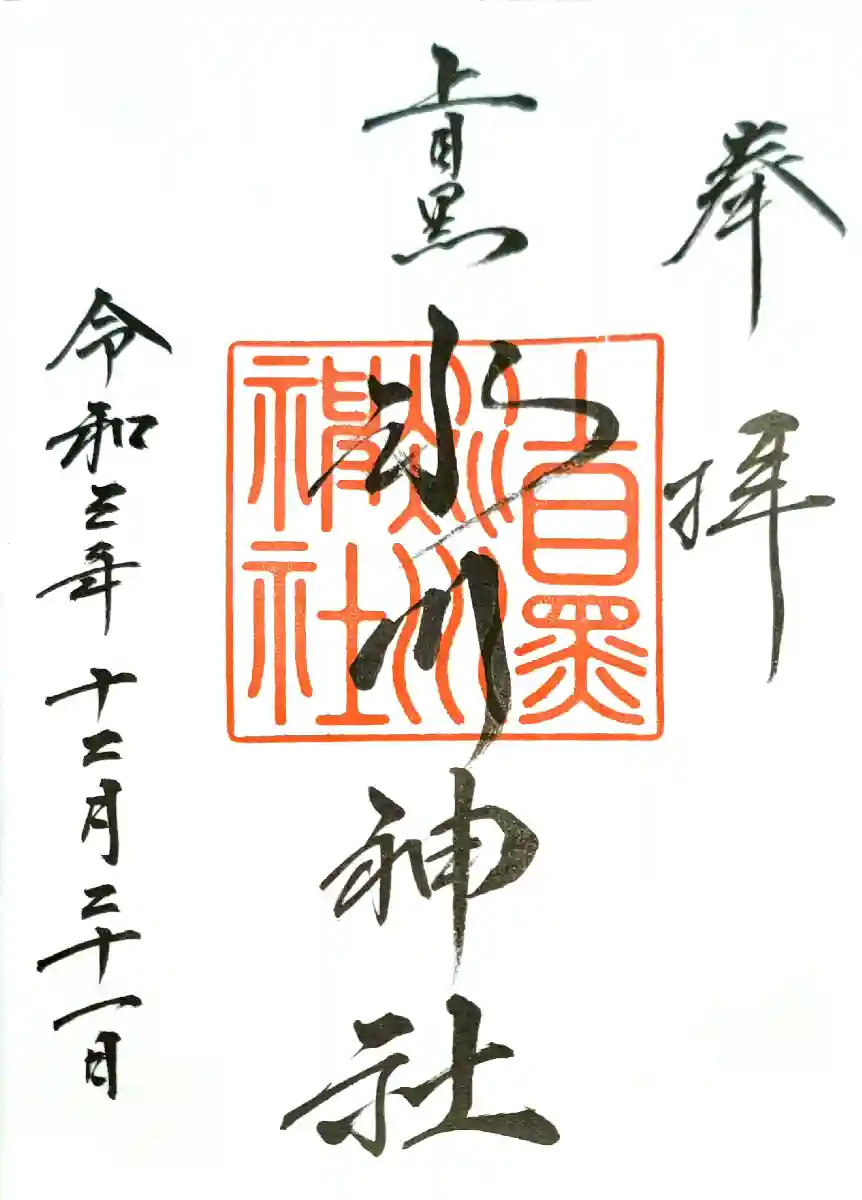 奉拝
上目黒
氷川神社
上目黒
氷川
神社
令和三年十二月二十一日